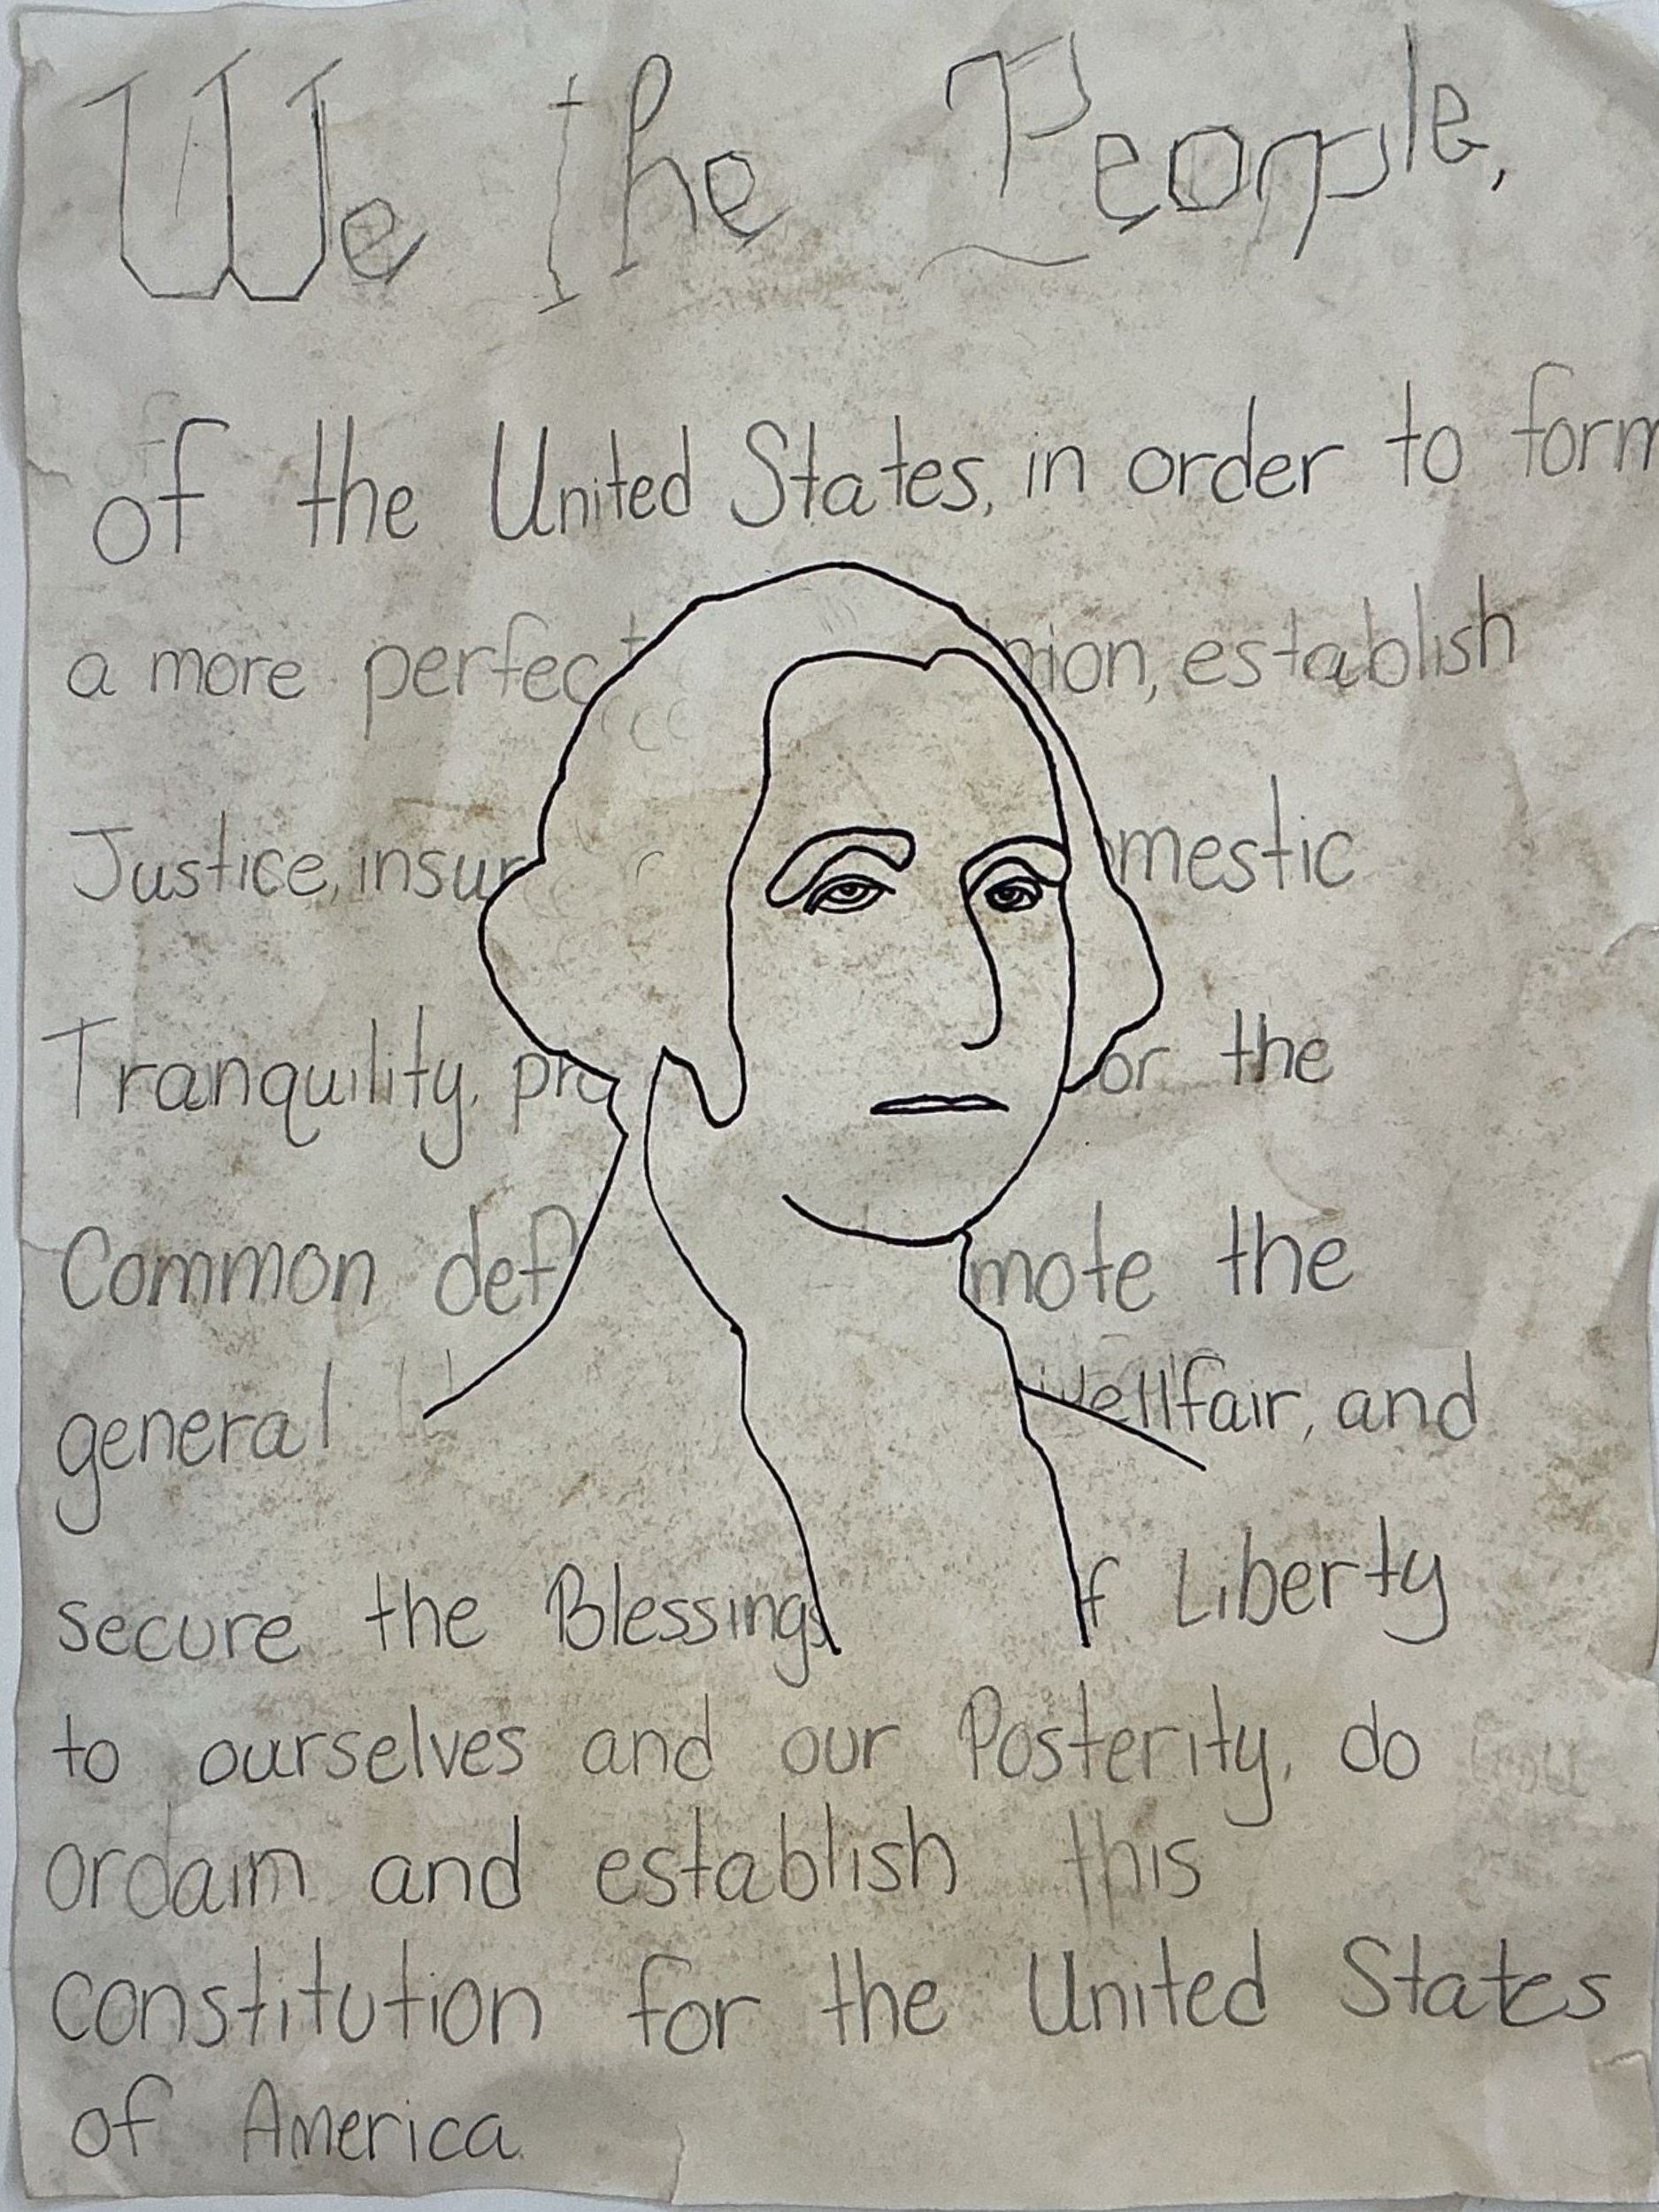 We the People,
of the United States, in order to form
a more perfect nion, establish
Justice, insur mestic
Tranquility, pro or the
Common def mote the
general Wellfair, and
secure the Blessings f Liberty
to ourselves and our Posterity, do
ordain and establish this
constitution for the United States
of America